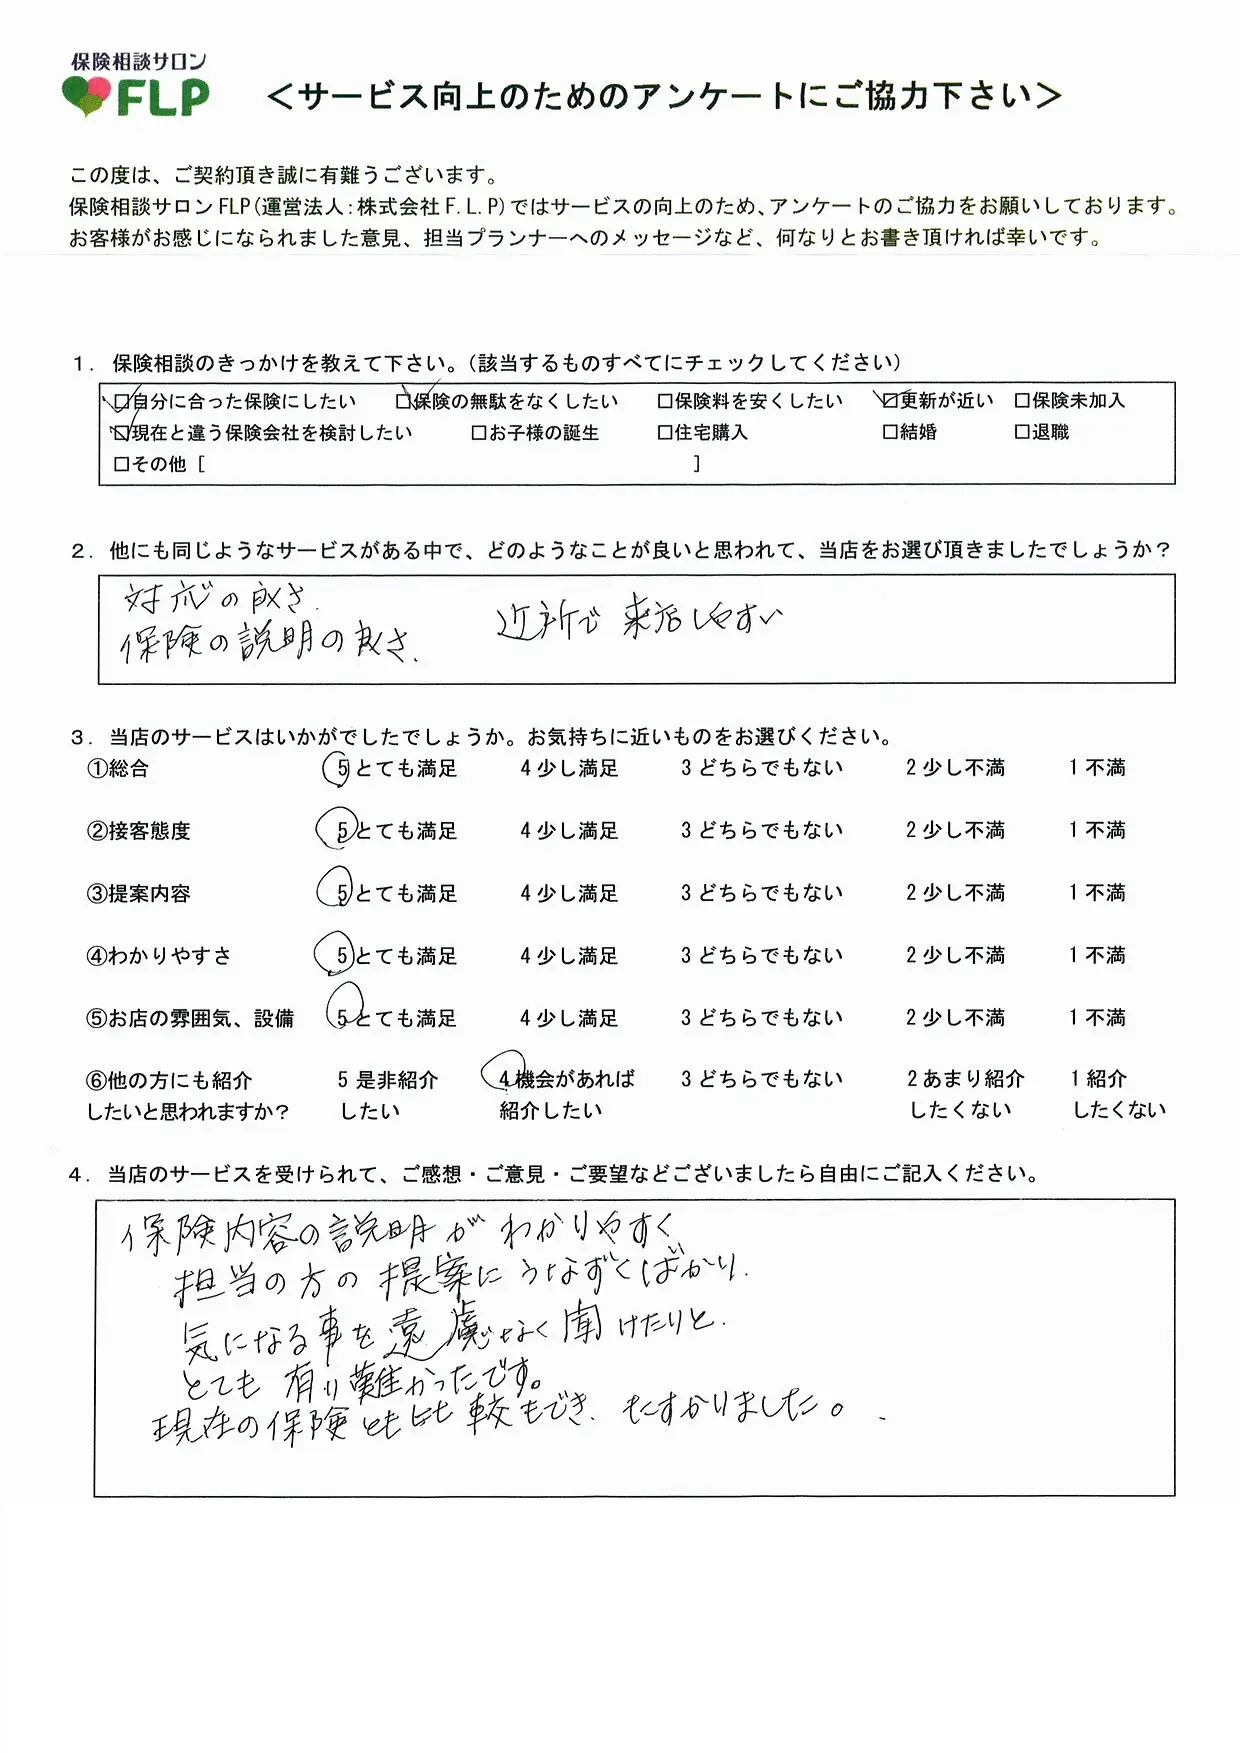 保険相談サロン
FLP
＜サービス向上のためのアンケートにご協力下さい＞
この度は、ご契約頂き誠に有難うございます。
保険相談サロン FLP(運営法人:株式会社 F.L.P)ではサービスの向上のため、アンケートのご協力をお願いしております。
お客様がお感じになられました意見、担当プランナーへのメッセージなど、何なりとお書き頂ければ幸いです。
１．保険相談のきっかけを教えて下さい。（該当するものすべてにチェックしてください）
☑自分に合った保険にしたい ☑保険の無駄をなくしたい □保険料を安くしたい ☑更新が近い □保険未加入
☑現在と違う保険会社を検討したい □お子様の誕生 □住宅購入 □結婚 □退職
□その他［ ］
２．他にも同じようなサービスがある中で、どのようなことが良いと思われて、当店をお選び頂きましたでしょうか？
対応の良さ.
保険の説明の良さ.
近所で来店しやすい
３．当店のサービスはいかがでしたでしょうか。お気持ちに近いものをお選びください。
①総合 5 とても満足 4 少し満足 3 どちらでもない 2 少し不満 1 不満
②接客態度 5 とても満足 4 少し満足 3 どちらでもない 2 少し不満 1 不満
③提案内容 5 とても満足 4 少し満足 3 どちらでもない 2 少し不満 1 不満
④わかりやすさ 5 とても満足 4 少し満足 3 どちらでもない 2 少し不満 1 不満
⑤お店の雰囲気、設備 5 とても満足 4 少し満足 3 どちらでもない 2 少し不満 1 不満
⑥他の方にも紹介 5 是非紹介 4 機会があれば 3 どちらでもない 2 あまり紹介 1 紹介
したいと思われますか？ したい 紹介したい したくない したくない
４．当店のサービスを受けられて、ご感想・ご意見・ご要望などございましたら自由にご記入ください。
保険内容の説明がわかりやすく
担当の方の提案にうなずくばかり.
気になる事を遠慮なく聞けたりと.
とても有り難かったです。
現在の保険とも比較もでき、たすかりました。